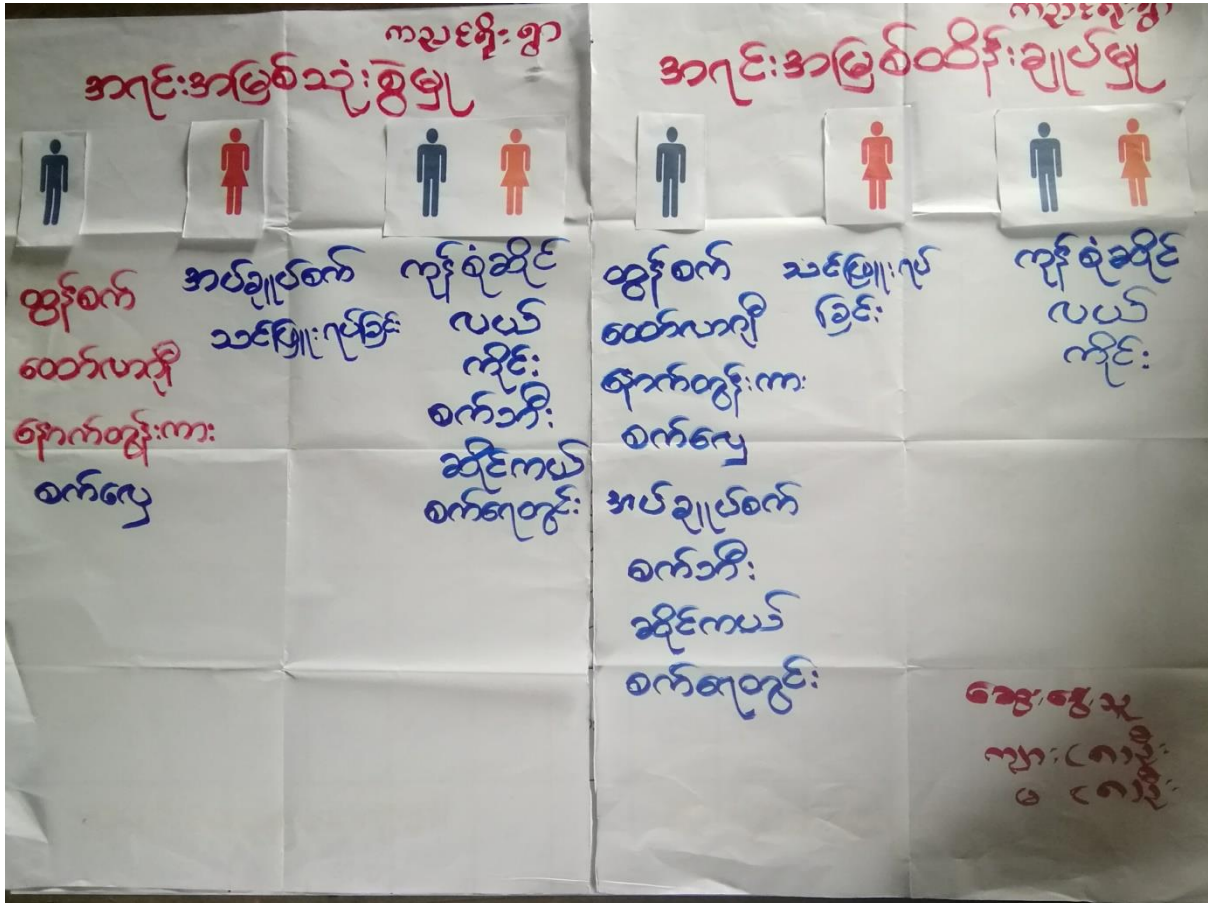 ကညင်ရိုးရွာ
အရင်းအမြစ်သုံးစွဲမှု
ထွန်စက်
ထော်လာဂျီ
နောက်တွန်းကား
စက်လှေ
အပ်ချုပ်စက်
သင်ဖြူးရပ်ခြင်း
ကုန်စုံဆိုင်
လယ်
ကိုင်း
စက်ဘီး
ဆိုင်ကယ်
စက်ရေတွင်း
ကညင်ရိုးရွာ
အရင်းအမြစ်ထိန်းချုပ်မှု
ထွန်စက်
ထော်လာဂျီ
နောက်တွန်းကား
စက်လှေ
အပ်ချုပ်စက်
စက်ဘီး
ဆိုင်ကယ်
စက်ရေတွင်း
သင်ဖြူးရပ်
ခြင်း
ကုန်စုံဆိုင်
လယ်
ကိုင်း
ဆွေးနွေးသူ
ကျား
မ